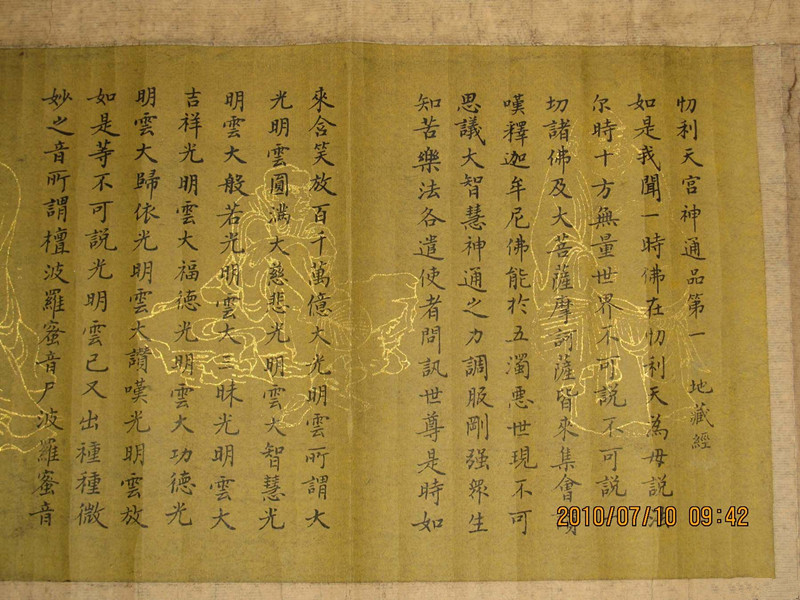 忉利天宮神通品第一 地藏經
如是我聞一時佛在忉利天為母說
尒時十方無量世界不可說不可說
切諸佛及大菩薩摩訶薩皆來集會
嘆釋迦牟尼佛能於五濁惡世現不可
思議大智慧神通之力調服剛强衆生
知苦樂法各遣使者問訊世尊是時如
來含笑放百千萬億大光明雲所謂大
光明雲圓滿大慈悲光明雲大智慧光
明雲大般若光明雲大三昧光明雲大
吉祥光明雲大福德光明雲大功德光
明雲大歸依光明雲大讚嘆光明雲放
如是等不可說光明雲已又出種種微
妙之音所謂檀波羅蜜音尸波羅蜜音
2010/07/10 09:42